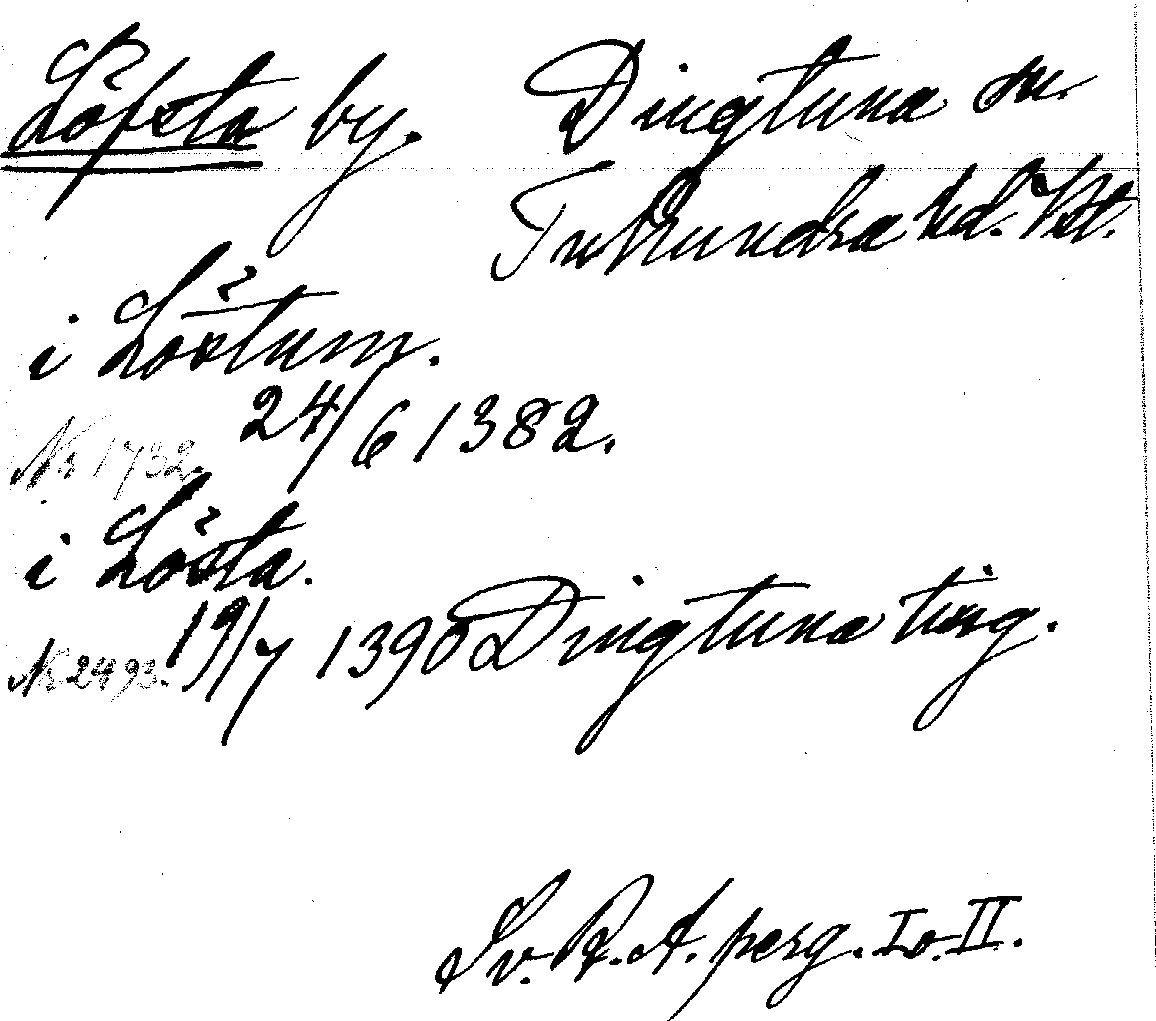 Löfsta by. Dingtuna sn.
Tuhundra hd. Vstl.
i Löstum.
Nr 1732. 24/6 1382.
i Lösta.
Nr 2493. 19/7 1390 Dingtuna ting.
Sv. R. A. perg. I o. II.